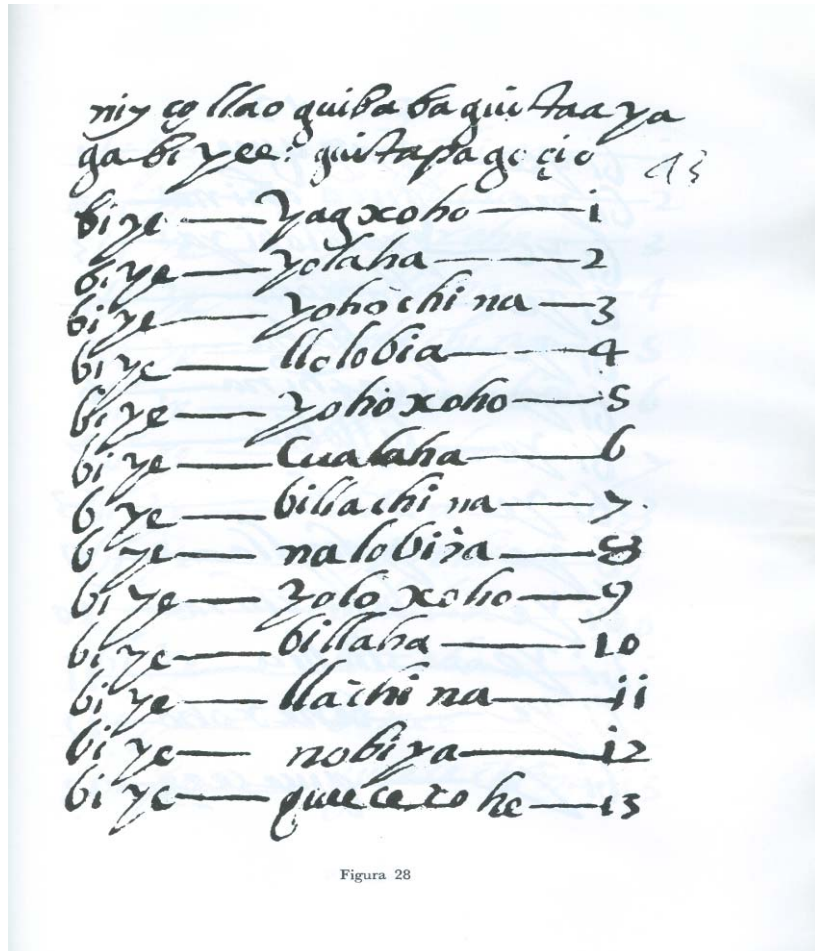 niy co llao quiba ba quitaa ya
ga bi yee: quitapa go cio 13
bi ye — yagxoho — 1
bi ye — yolaha — 2
bi ye — yohochi na — 3
bi ye — llolobia — 4
bi ye — yohoxoho — 5
bi ye — Cualaha — 6
bi ye — billachi na — 7
bi ye — nalobiya — 8
bi ye — yoloxoho — 9
bi ye — billaha — 10
bi ye — llachi na — 11
bi ye — nobiya — 12
bi ye — quecexo he — 13
Figura 28